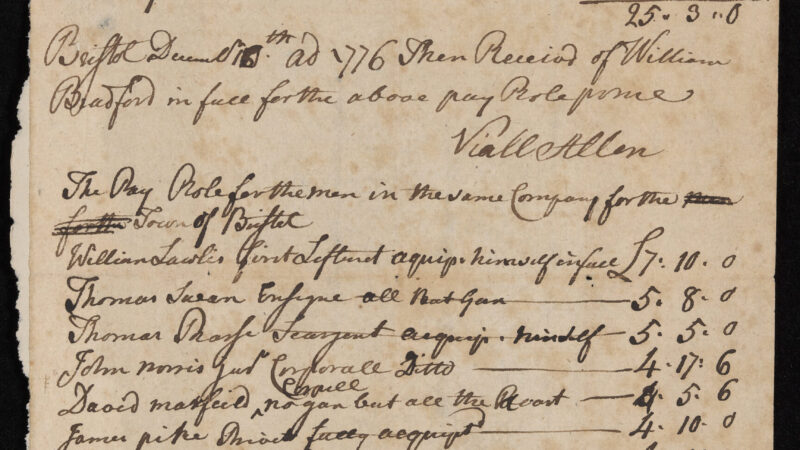 25. 3. 0
Bristol Decembr 18th ad 1776 Then Receivd of William
Bradford in full for the above pay Role pr me
Viall Allen
The Pay Role for the men in the same Company for the
for the Town of Bristol
William Lawlis first Leftenet aquip. himself in full £7. 10. 0
Thomas Ensigne all But Gun 5. 8. 0
Thomas Seargent acquip. himself 5. 5. 0
John Norris Junr Corporall Ditto 4. 17. 6
Corpll
David Maxfeild no gun but all the Rest 4. 5. 6
James pike Privet fully acquipt 4. 10. 0